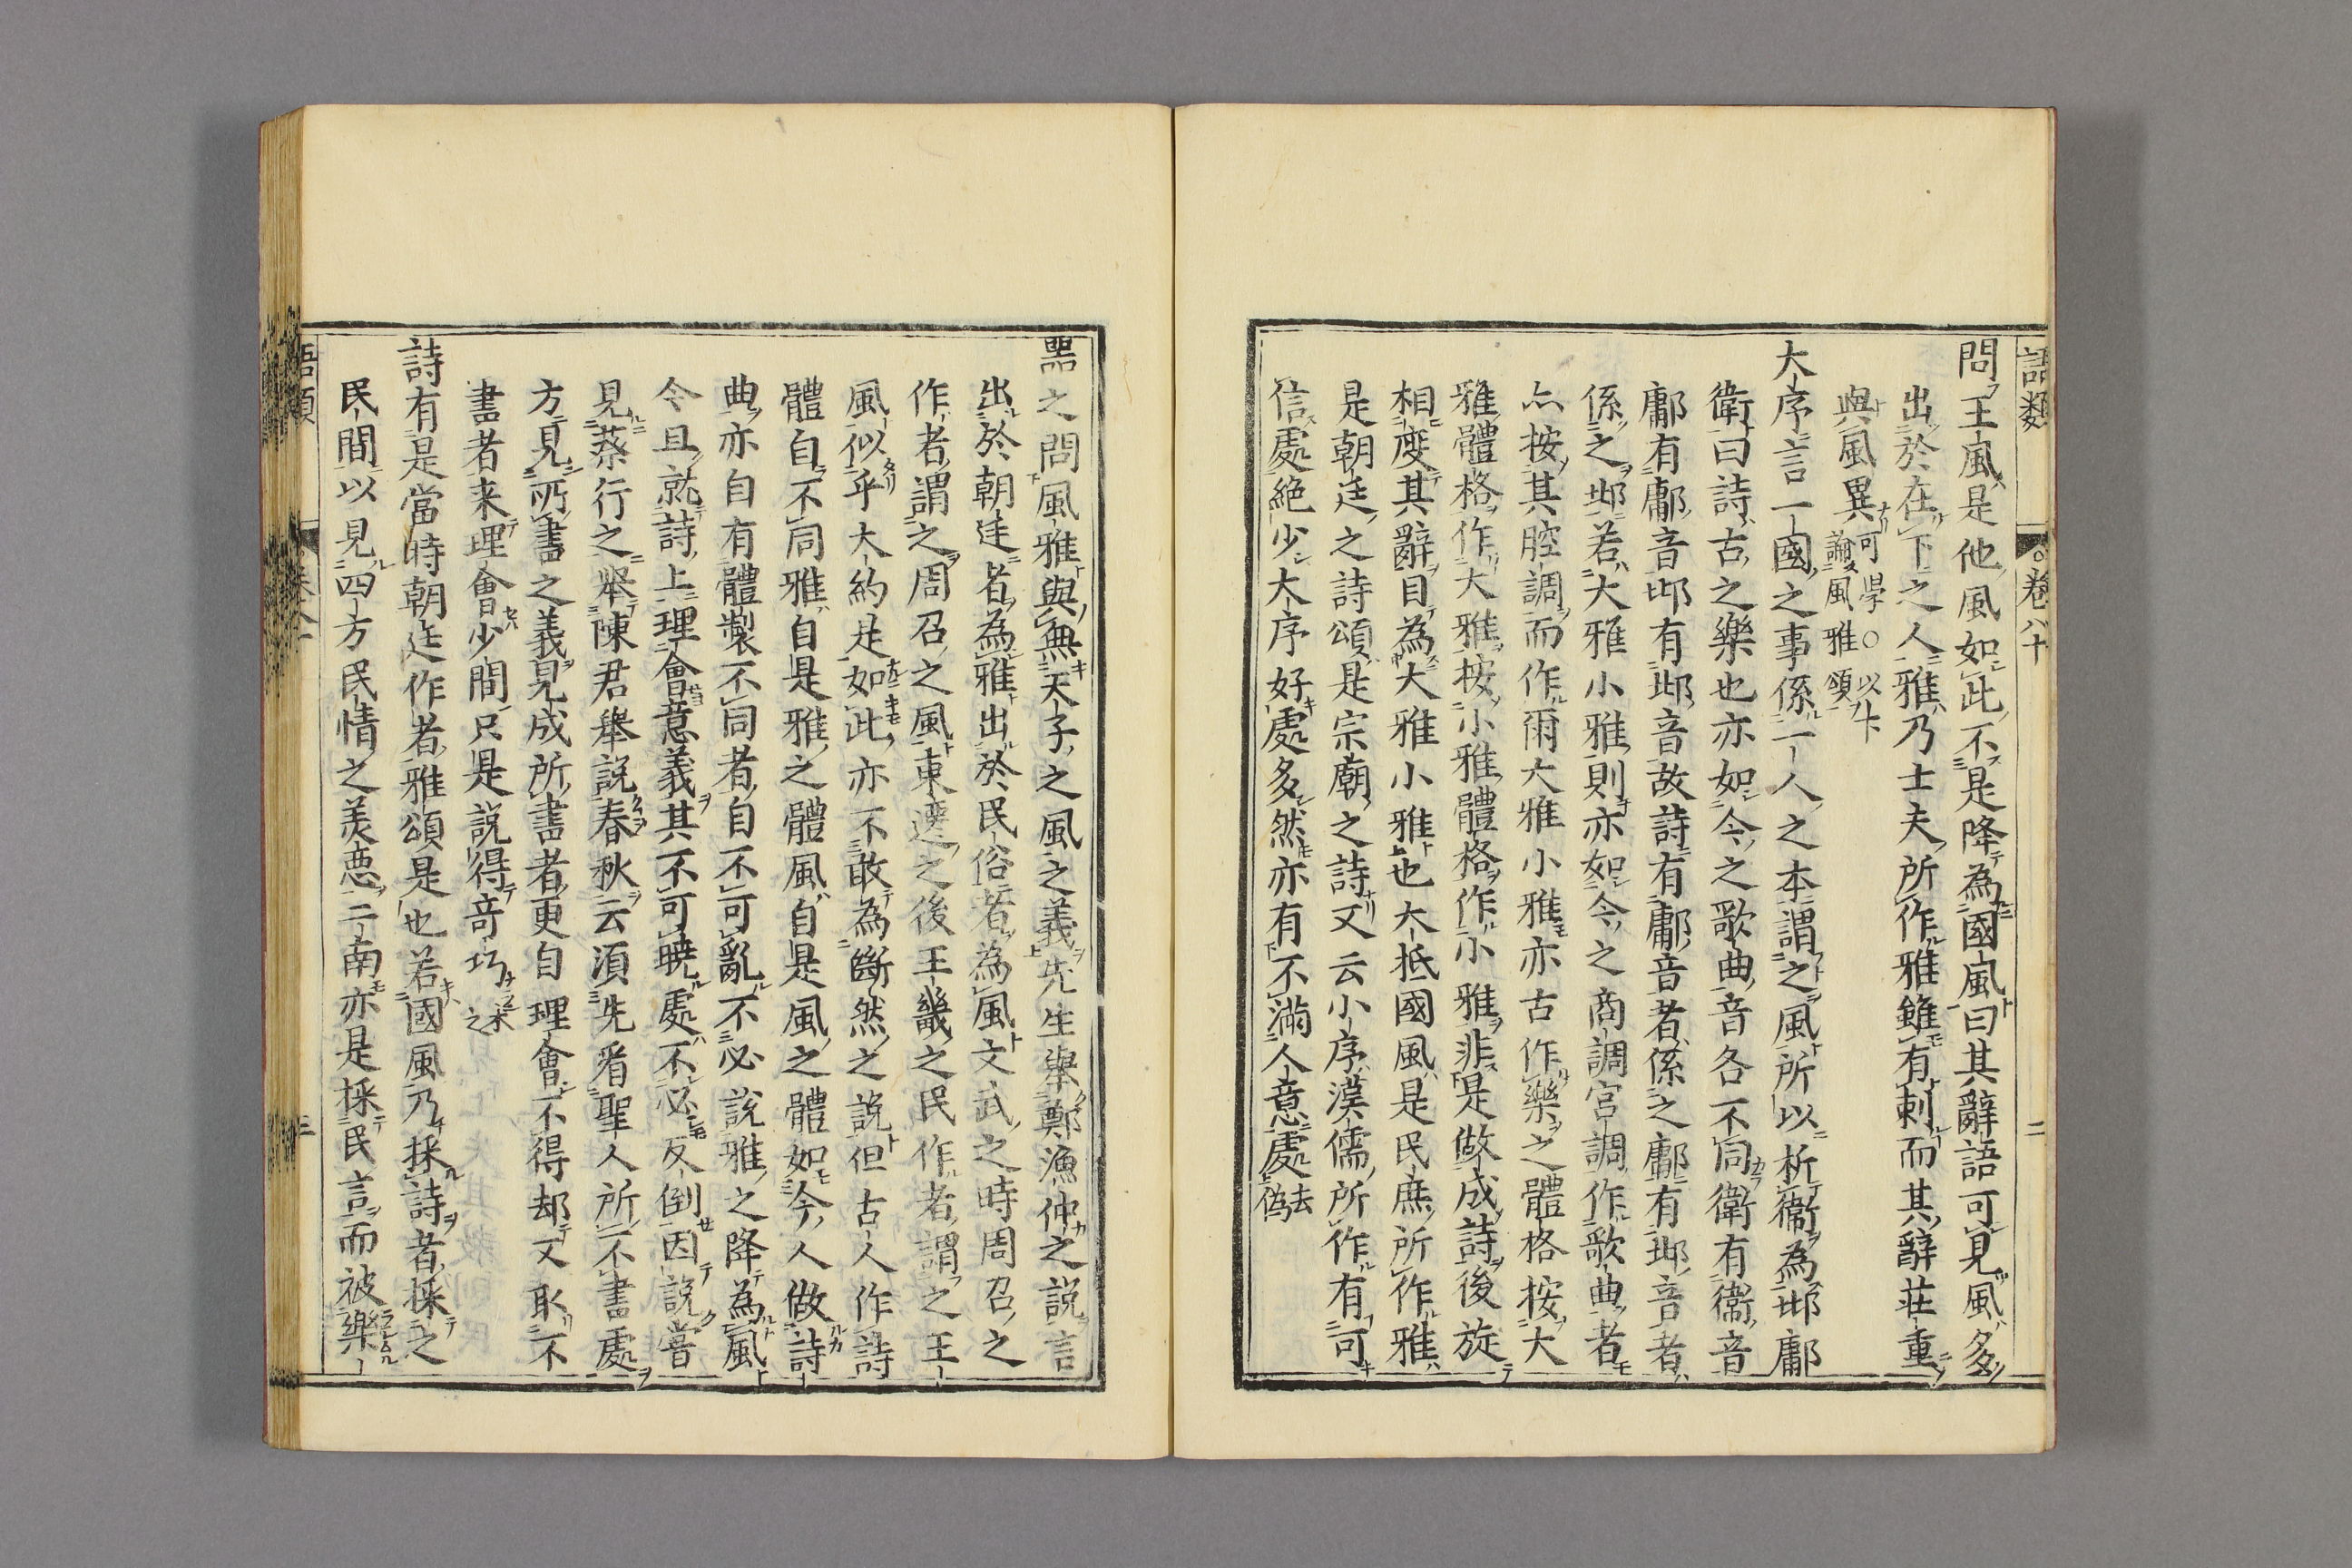 語類　卷八十　二
問王風是他風如此不是降為國風曰其辭語可見風多
出於在下之人雅乃士夫所作雅雖有刺而其辭莊重
與風異可學○以下論風雅頌
大序言一國之事係一人之本謂之風所以析衞為邶鄘
衛曰詩古之樂也亦如今之歌曲音各不同衛有衞音
鄘有鄘音邶有邶音故詩有鄘音者係之鄘有邶音者
係之邶若大雅小雅則亦如今之商調宮調作歌曲者
亦按其腔調而作爾大雅小雅亦古作樂之體格按大
雅體格作大雅按小雅體格作小雅非是做成詩後旋
相度其辭目為大雅小雅也大抵國風是民庶所作雅
是朝廷之詩頌是宗廟之詩又云小序漢儒所作有可
信處絶少大序好處多然亦有不滿人意處去偽
器之問風雅與無天子之風之義先生舉鄭漁仲之説言
出於朝廷者為雅出於民俗者為風文武之時周召之
作者謂之周召之風東遷之後王畿之民作者謂之王
風似乎大約是如此亦不敢為斷然之説但古人作詩
體自不同雅自是雅之體風自是風之體如今人做詩
曲亦自有體製不同者自不可亂不必説雅之降為風
今且就詩上理會意義其不可曉處不必反倒因説嘗
見蔡行之舉陳君舉説春秋云須先看聖人所不書處
方見所書之義見成所書者更自理會不得却又取不
書者来理會少間只是説得奇巧木之
詩有是當時朝廷作者雅頌是也若國風乃採詩者採之
民間以見四方民情之美惡二南亦是採民言而被樂
語類　三